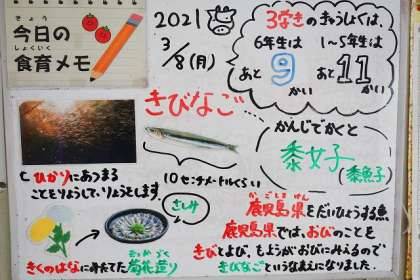 きょう
今日の
しょくいく
食育メモ
2021
3/8(月)
3学きのきゅうしょくは、
6年生は
あと9かい
1~5年生は
あと11かい
きびなご
かんじでかくと
黍女子
(黍魚子)
ひかりにあつまる
ことをりようしてりょうとします。
10センチメートルくらい
さしみ
きくのはなにみたてた菊花造り
かごしまけん
鹿児島県をだいひょうする魚
鹿児島県では、おびのことを
きびとよび、もようがおびにみえるので
きびなごというなまえになりました。